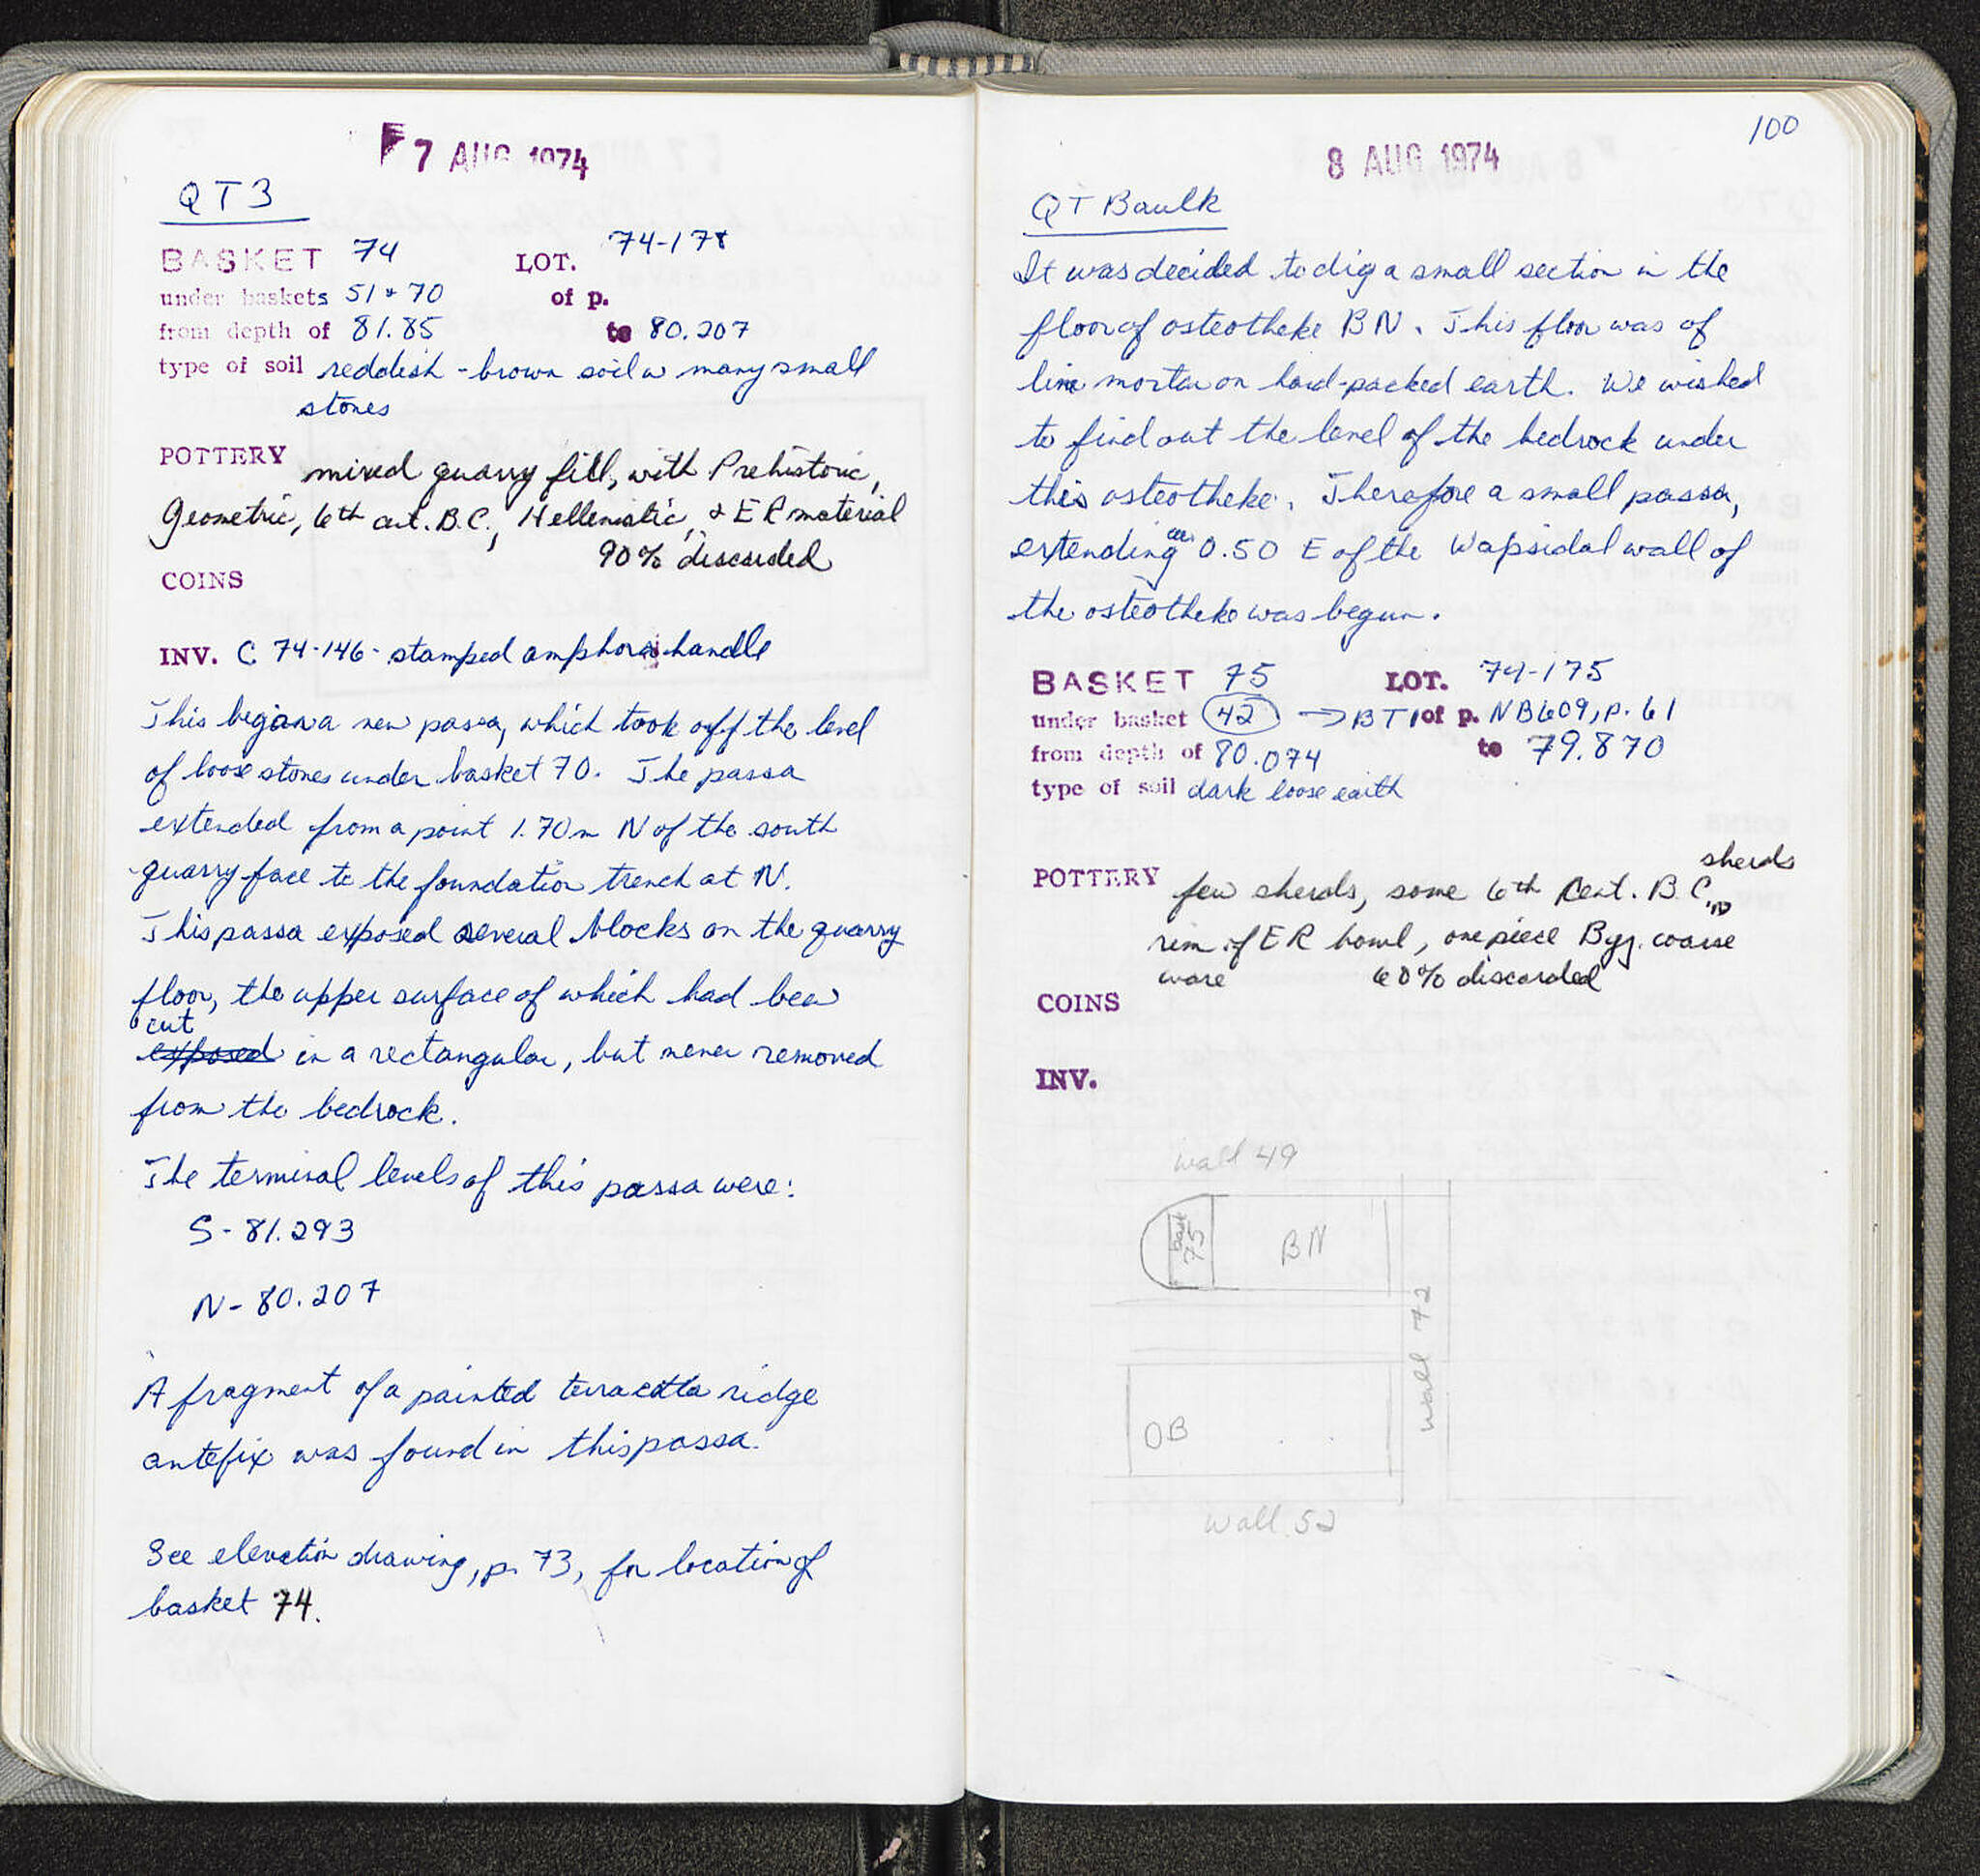 7 AUG 1974
QT3
BASKET 74 LOT. 74-178
under baskets 51 & 70 of p.
from depth of 81.85 to 80.207
type of soil reddish-brown soil w many small
stones
POTTERY mixed quarry fill, with Prehistoric,
Geometric, 6th cent. B.C., Hellenistic, & ER material
90% discarded
COINS
INV. C 74-146 - stamped amphora handle
This began a new passa, which took off the level
of loose stones under basket 70. The passa
extended from a point 1.70m N of the south
quarry face to the foundation trench at N.
This passa exposed several blocks on the quarry
floor, the upper surface of which had been
cut
exposed in a rectangular, but never removed
from the bedrock.
The terminal levels of this passa were:
S - 81.293
N - 80.207
A fragment of a painted terracotta ridge
antefix was found in this passa.
See elevation drawing, p. 73, for location of
basket 74.
100
8 AUG 1974
QT Baulk
It was decided to dig a small section in the
floor of osteotheke BN. This floor was of
lime mortar on hard-packed earth. We wished
to find out the level of the bedrock under
this osteotheke. Therefore a small passa,
extending ca. 0.50 E of the W apsidal wall of
the osteotheke was begun.
BASKET 75 LOT. 74-175
under basket 42 → BT1 of p. NB609, p. 61
from depth of 80.074 to 79.870
type of soil dark loose earth
sherds
POTTERY few sherds, some 6th cent. B.C.,
rim of ER bowl, one piece Byz. coarse
ware 60% discarded
COINS
INV.
wall 49
Bask
75
BN
wall 72
OB
wall 52